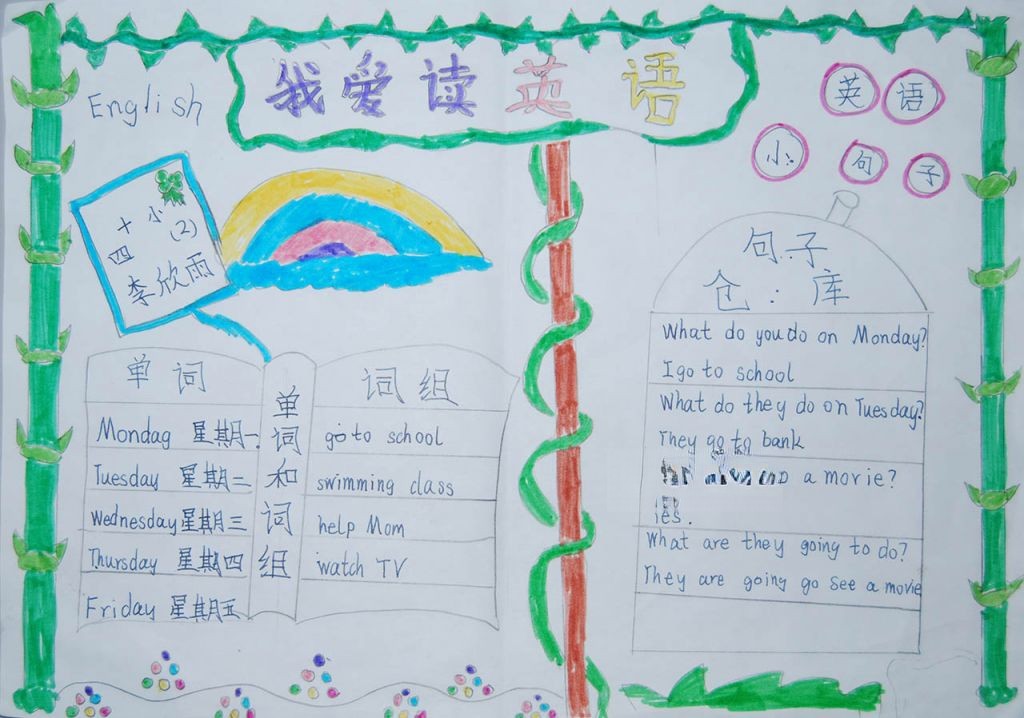 English
我爱读英语
英语
小句子
十小(2)
四
李欣雨
单词
Mondag 星期一
Tuesday 星期二
Wednesday 星期三
Thursday 星期四
Friday 星期五
单词和词组
词组
go to school
swimming class
help Mom
watch TV
句子
仓:库
What do you do on Monday?
I go to school
What do they do on Tuesday?
They go to bank
a movie?
What are they going to do?
They are going go see a movie